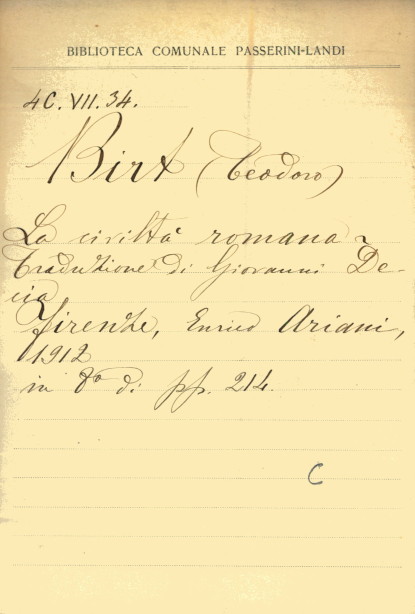 BIBLIOTECA COMUNALE PASSERINI-LANDI
4C. VII. 34.
Birt (Teodoro)
La civiltà romana ~
Traduzione di Giovanni De-
cia
Firenze, Enrico Ariani,
1912
in 8° di pp. 214.
C